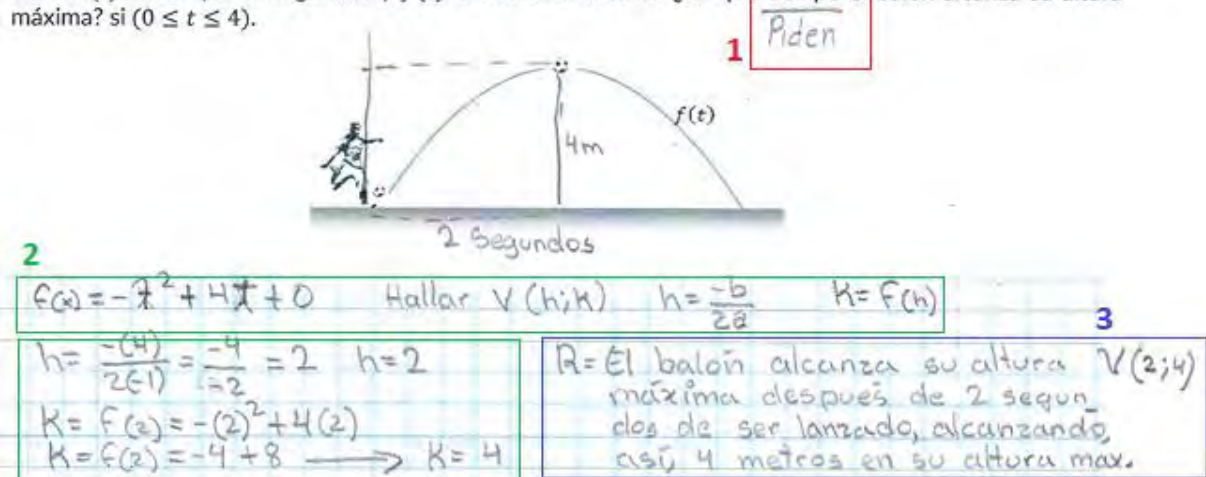 máxima? si (0 ≤ t ≤ 4).
1
Piden
f(t)
4m
2 Segundos
2
f(x) = -t² + 4t + 0 Hallar V (h;k) h = -b/2a K = f(h)
h = -(4)/2(-1) = -4/-2 = 2 h = 2
K = f(2) = -(2)² + 4(2)
K = f(2) = -4 + 8 ⟶ K = 4
3
R = El balón alcanza su altura V(2;4)
máxima después de 2 segun
dos de ser lanzado, alcanzando,
así, 4 metros en su altura max.